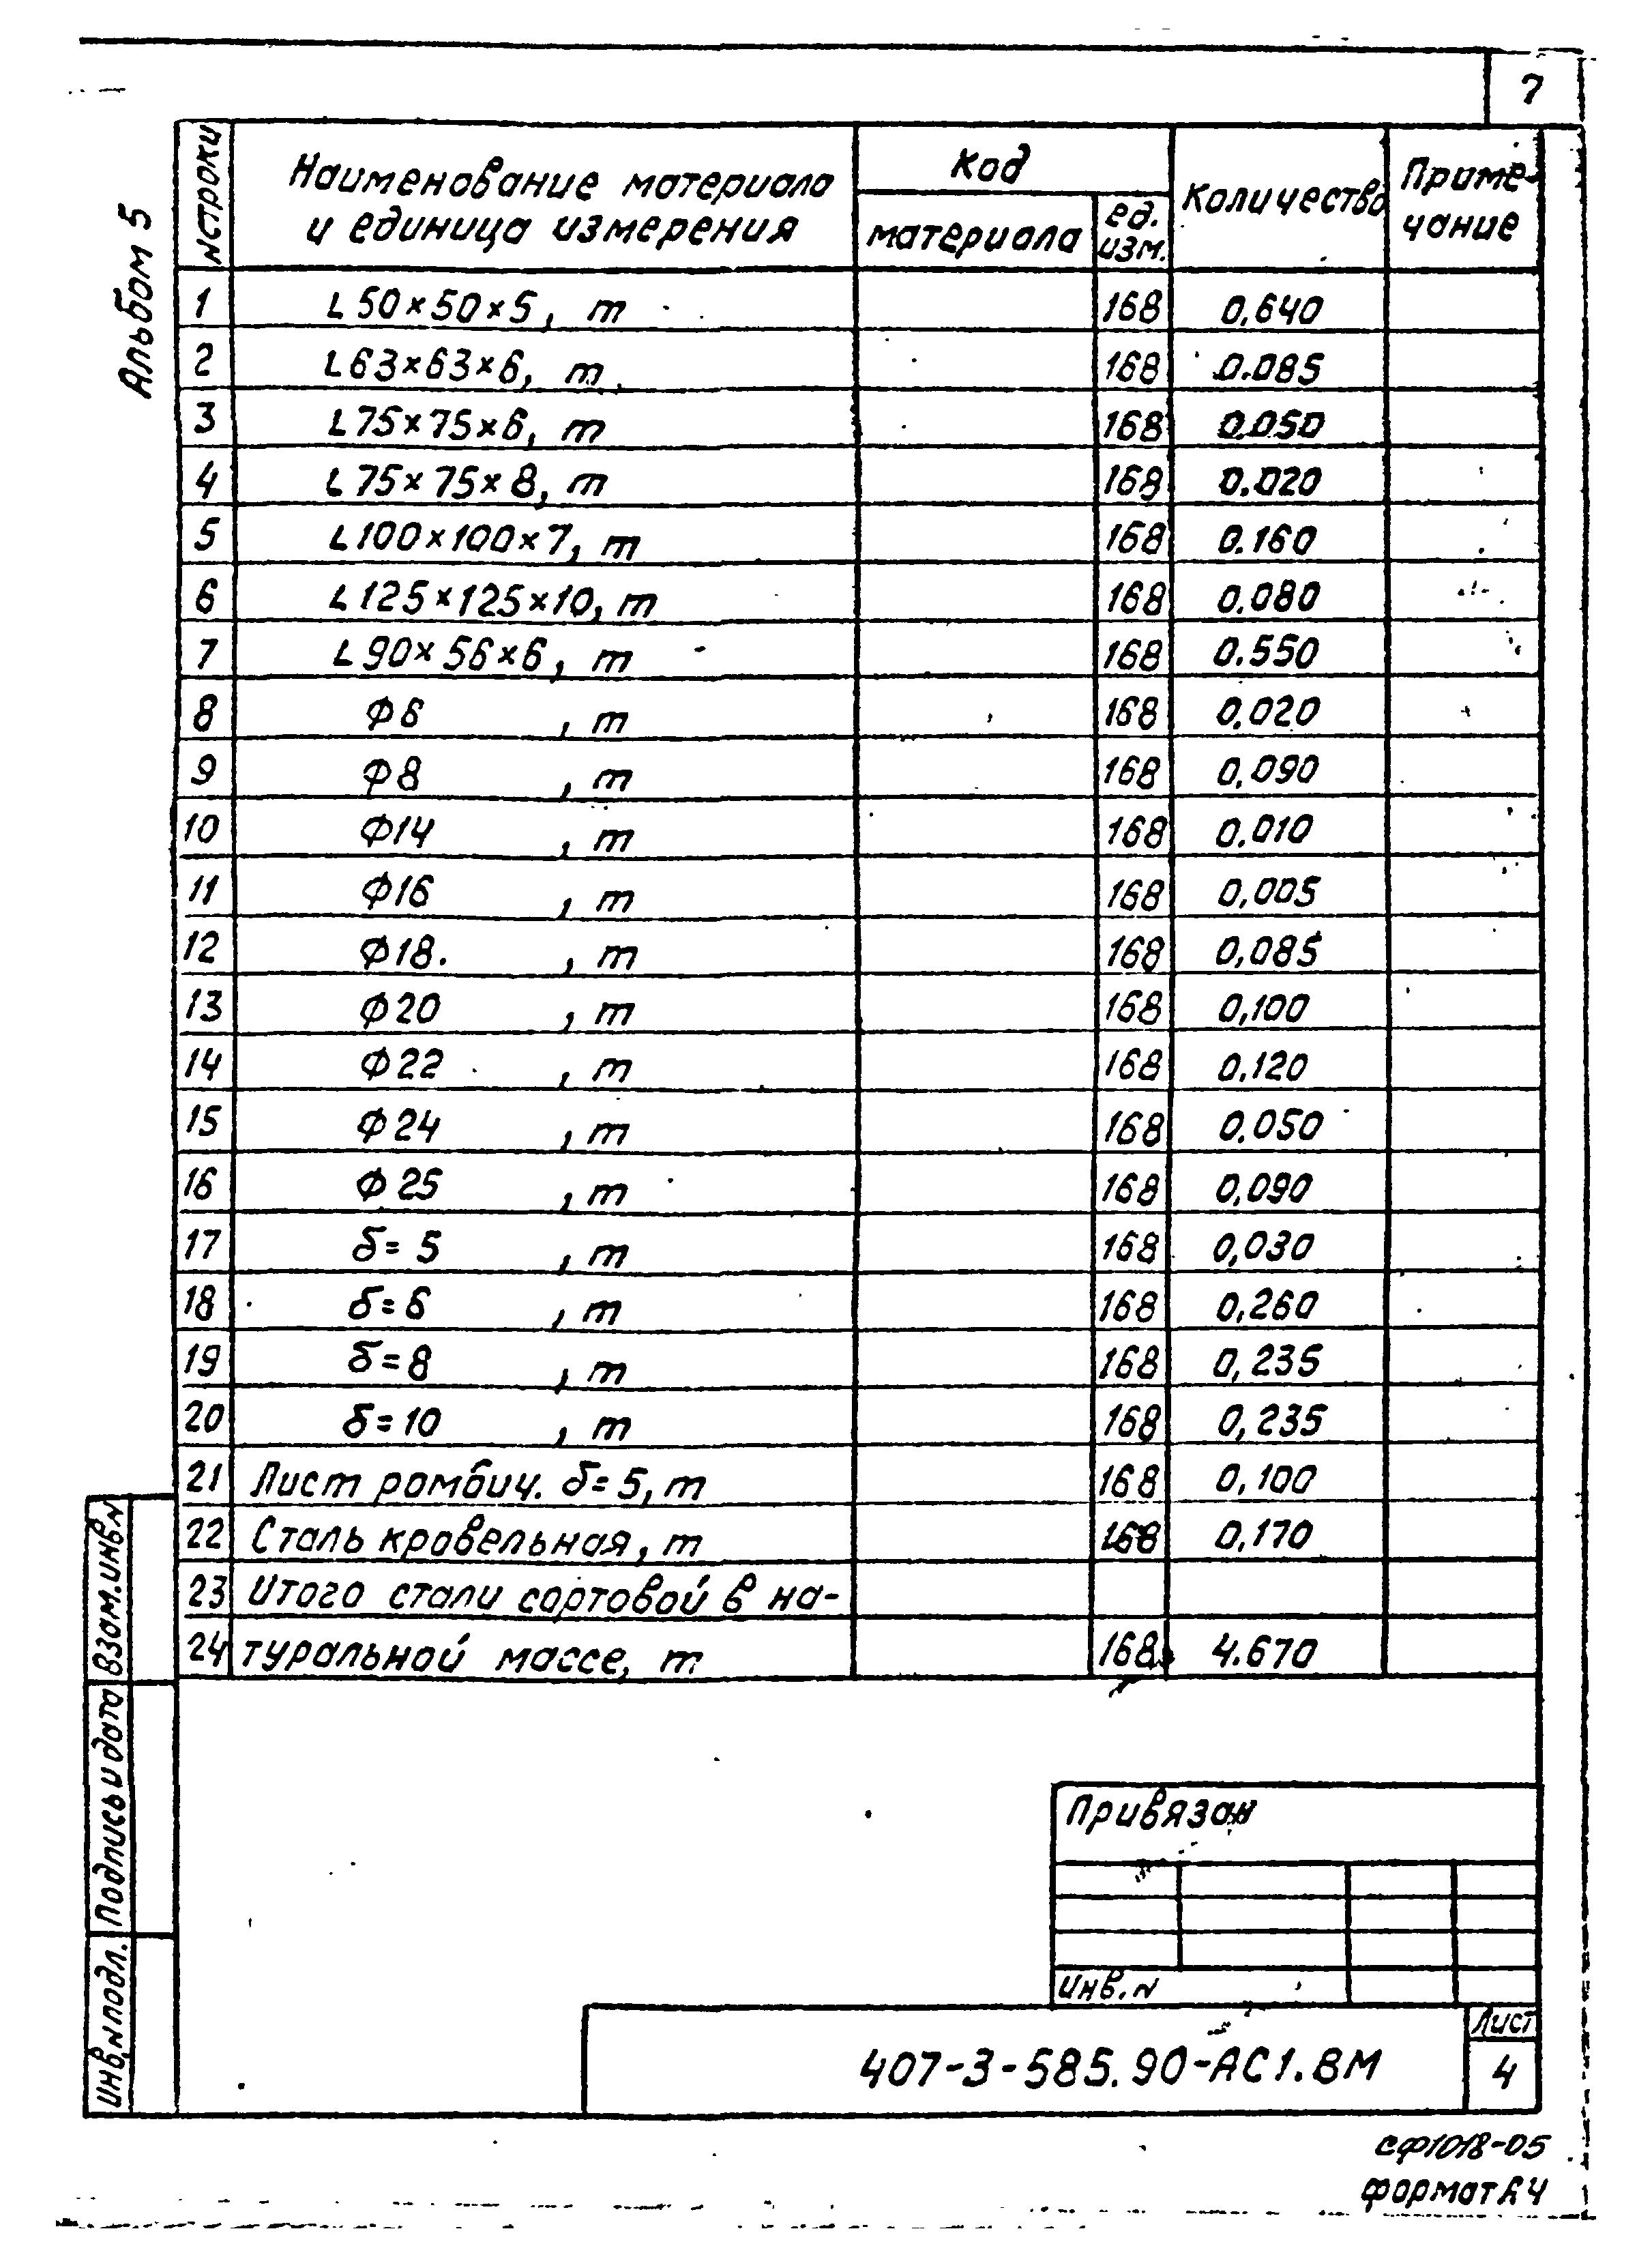 7
Альбом 5
N строки
Наименование материала
и единица измерения
Код
материала
ед.
изм.
Количество
Приме-
чание
1 L 50×50×5, т 168 0,640
2 L 63×63×6, т 168 0.085
3 L 75×75×6, т 168 0.050
4 L 75×75×8, т 168 0.020
5 L 100×100×7, т 168 0.160
6 L 125×125×10, т 168 0.080
7 L 90×56×6, т 168 0.550
8 Ф6 , т 168 0,020
9 Ф8 , т 168 0,090
10 Ф14 , т 168 0.010
11 Ф16 , т 168 0,005
12 Ф18. , т 168 0,085
13 Ф20 , т 168 0,100
14 Ф22 , т 168 0.120
15 Ф24 , т 168 0.050
16 Ф25 , т 168 0,090
17 δ= 5 , т 168 0,030
18 δ=6 , т 168 0,260
19 δ=8 , т 168 0,235
20 δ=10 , т 168 0,235
21 Лист ромбич. δ=5, т 168 0,100
22 Сталь кровельная, т 168 0,170
23 Итого стали сортовой в на-
24 туральной массе, т 168 4.670
Взам.инв.N
Подпись и дата
Инв.N подл.
Привязан
Инв.N
407-3-585.90-АС1.ВМ
Лист
4
сф1018-05
формат А4